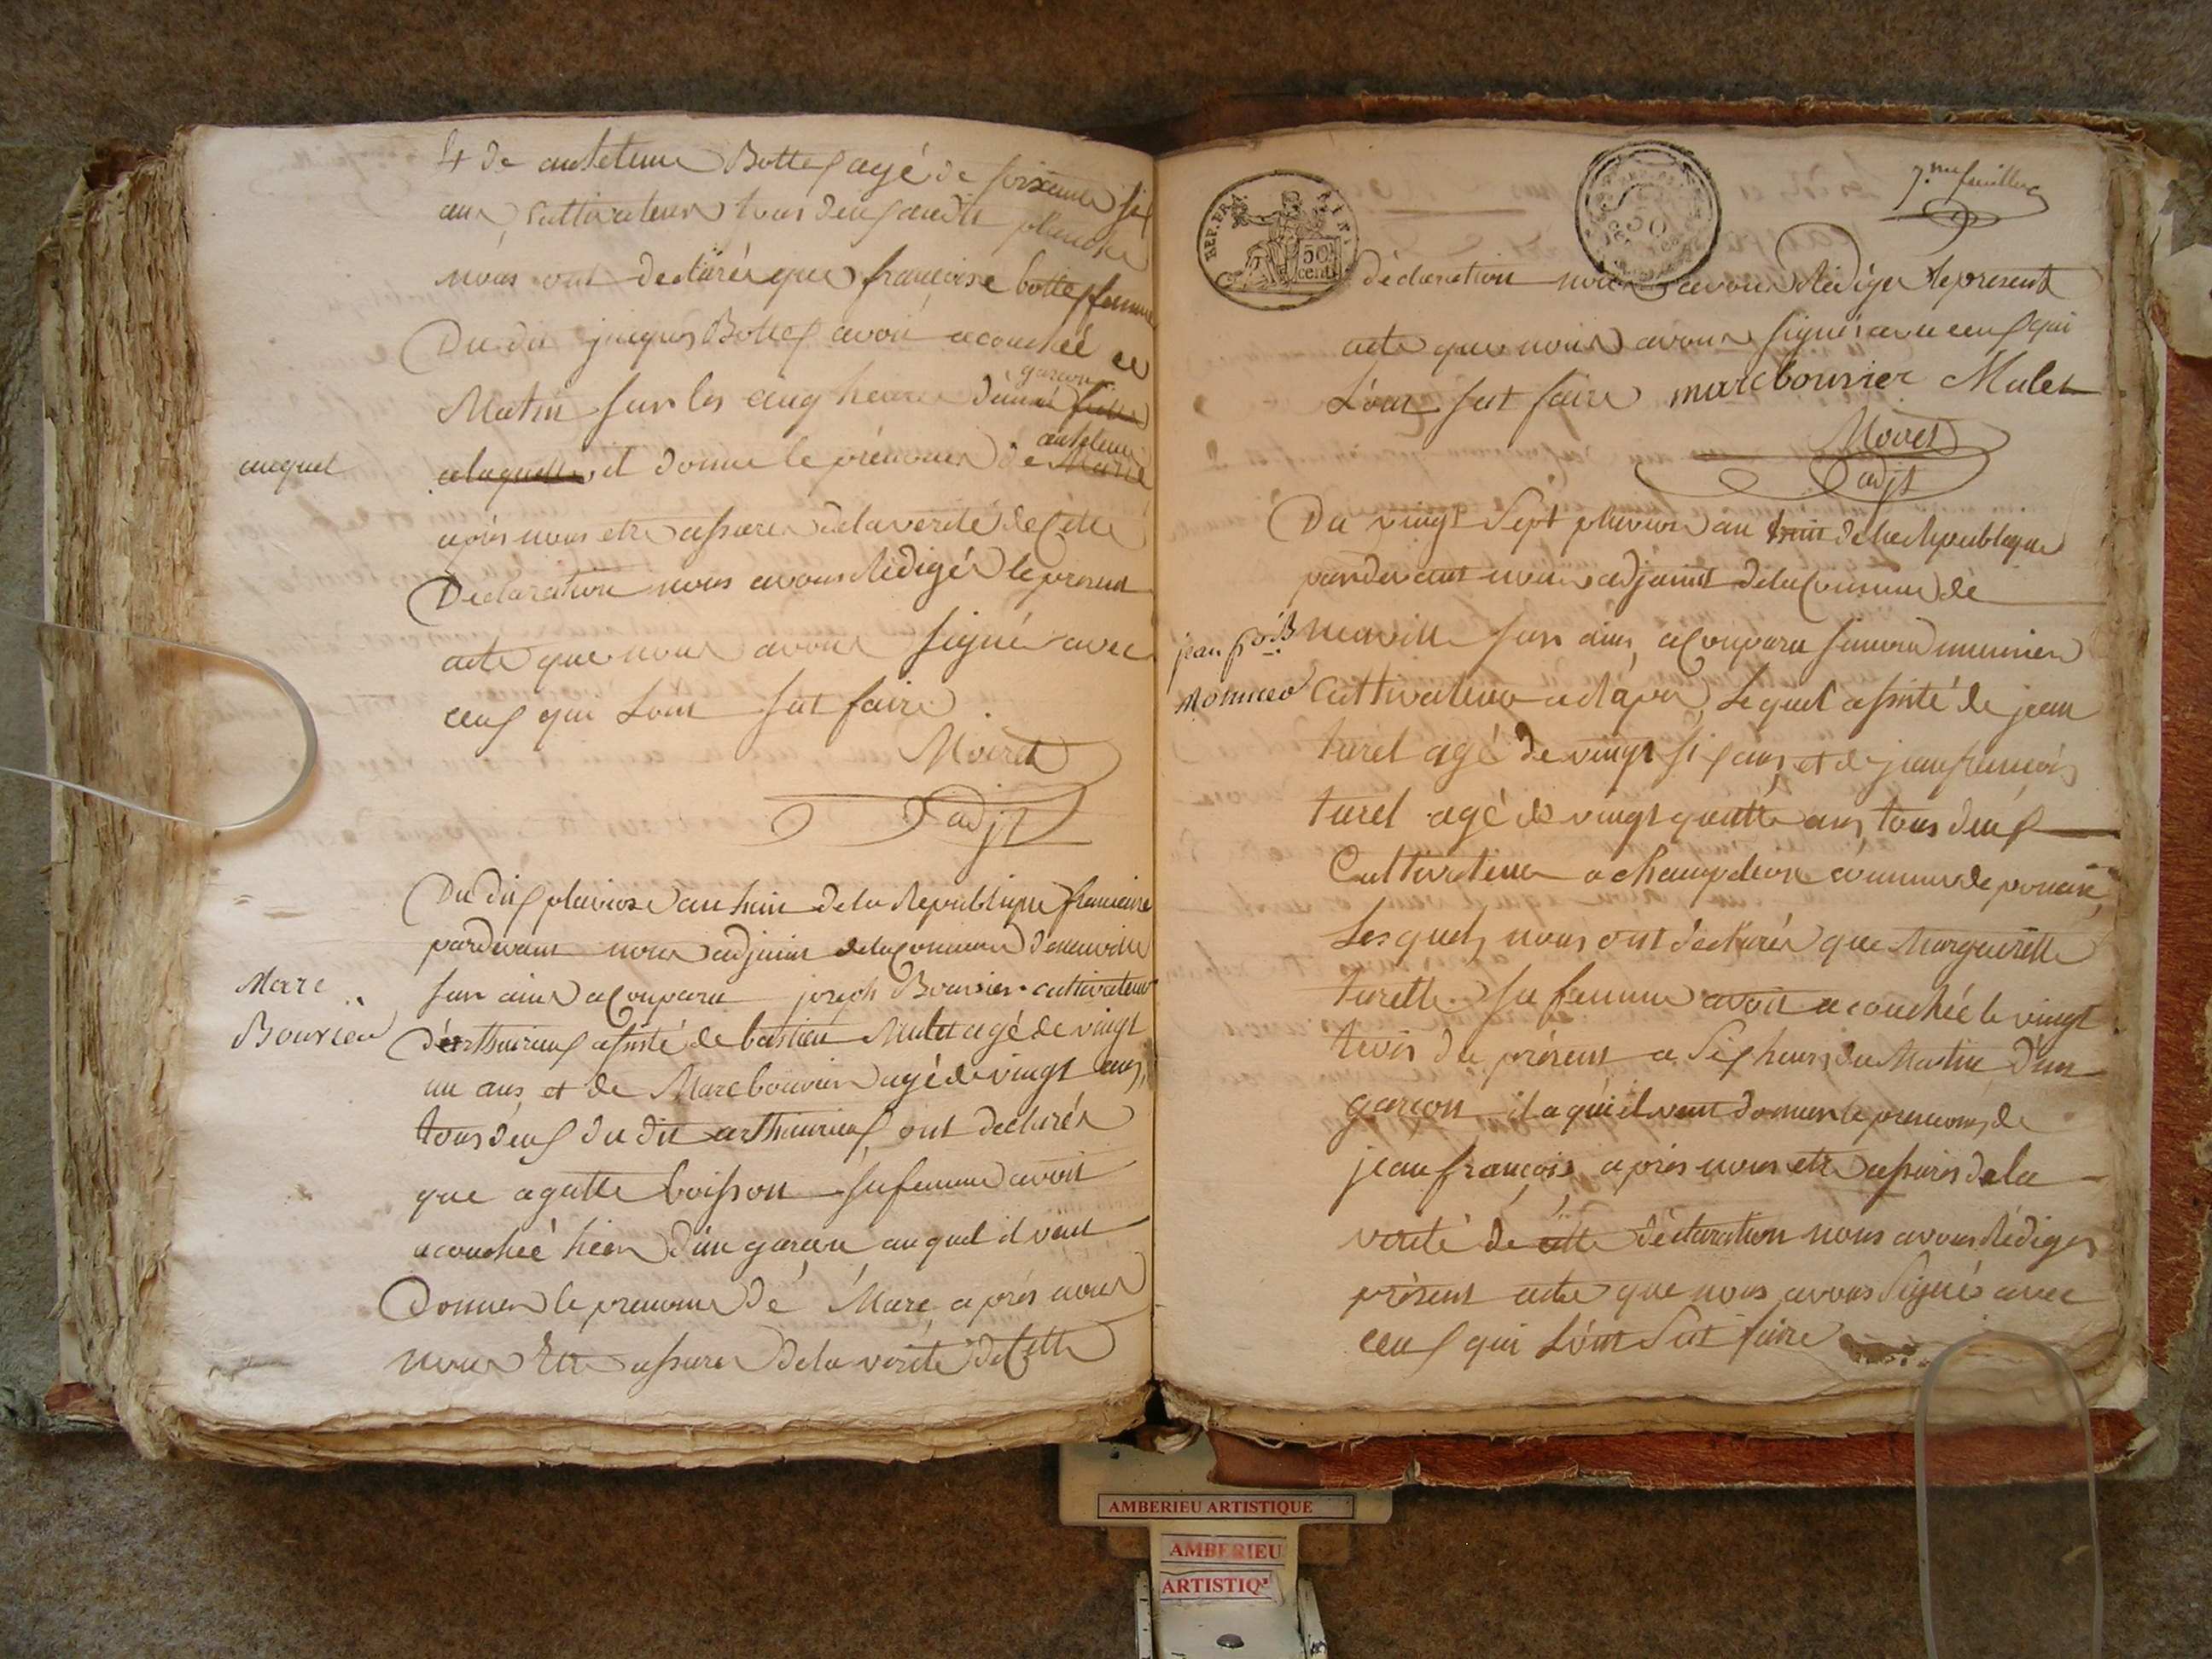 et de anteleme Bottex agé de soixante six
ans, cultivateurs tous deux audit planche
nous ont declarés que françoise bottex femme
Du dit jacques Bottex avoit acouchée ce
garcon
Matin sur les cinq heures d'une fille
anteleme
auquel
alaquelle il donne le prénom de Marie
après nous etre assurés dela verité de Cette
Declaration nous avons Rédigés le present
acte que nous avons signé avec
ceux qui L'ont sut faire
Moiret
adjt
Du dix pluviose an huit dela Republique francaise
pardevant nous adjoint dela Commune deneuville
Marc
Bouvier
sur ains a Comparu joseph Bouvier cultivateur
d'arthurieux assisté de bastien Mulet agé de vingt
un ans, et de Marc bouvier agé de vingt ans,
tous deux du dit arthurieux, ont declarés
que agatte boisson sa femme avoit
acouchée hier d'un garcon auquel il veut
Donner le prenom de Marc, a près nous
nous Etre assurés dela verité de Cette
REP. FRA
50 cent
7.me feuillet
déclaration nous avons Rédigés le present
acte que nous avons signés avec ceux qui
L'ont sut faire marc bouvier Mulet
Moiret
adjt
Du vingt Sept pluviose an huit de la Republique
pardevant nous adjoint dela Commune de
jean fois
neuville sur ains, a Comparu
Cultivateur a Lequel assisté de jean
turel agé de vingt six ans, et de jean françois
turel agé de vingt quatre ans, tous deux
Cultivateur a commune de poncin,
Lesquels nous ont declarés que Margueritte
turelle sa femme avoit acouchée le vingt
trois du présent a Six heures du Matin D'un
garçon il a qui il veut donner le prenom, de
jean françois, après nous etre assurés de la
verité de cette déclaration nous avons Rédiges
présent acte que nous avons Signés avec
ceux qui L'ont Sut faire
AMBERIEU ARTISTIQUE
AMBERIEU
ARTISTIQ